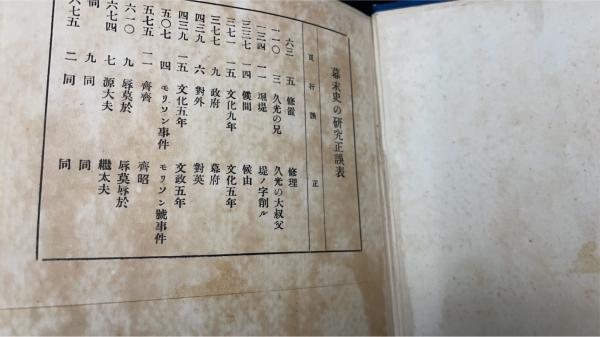 幕末史の研究正誤表
頁 行 誤 正
六三 五 修置 修理
一一〇 三 久光の兄 久光の大叔父
一三四 一一 堀堤 堤ノ字削ル
三三七 一四 候間 候由
三七一 一五 文化九年 文化五年
三七七 九 政府 幕府
四三九 六 對外 對英
四三九 一五 文化五年 文政五年
五〇七 四 モリソン事件 モリソン號事件
五七五 一一 齊齊 齊昭
六一〇 九 辱莫於 辱莫辱於
六七四 七 源大夫 繼太夫
同 九 同 同
六七五 二 同 同